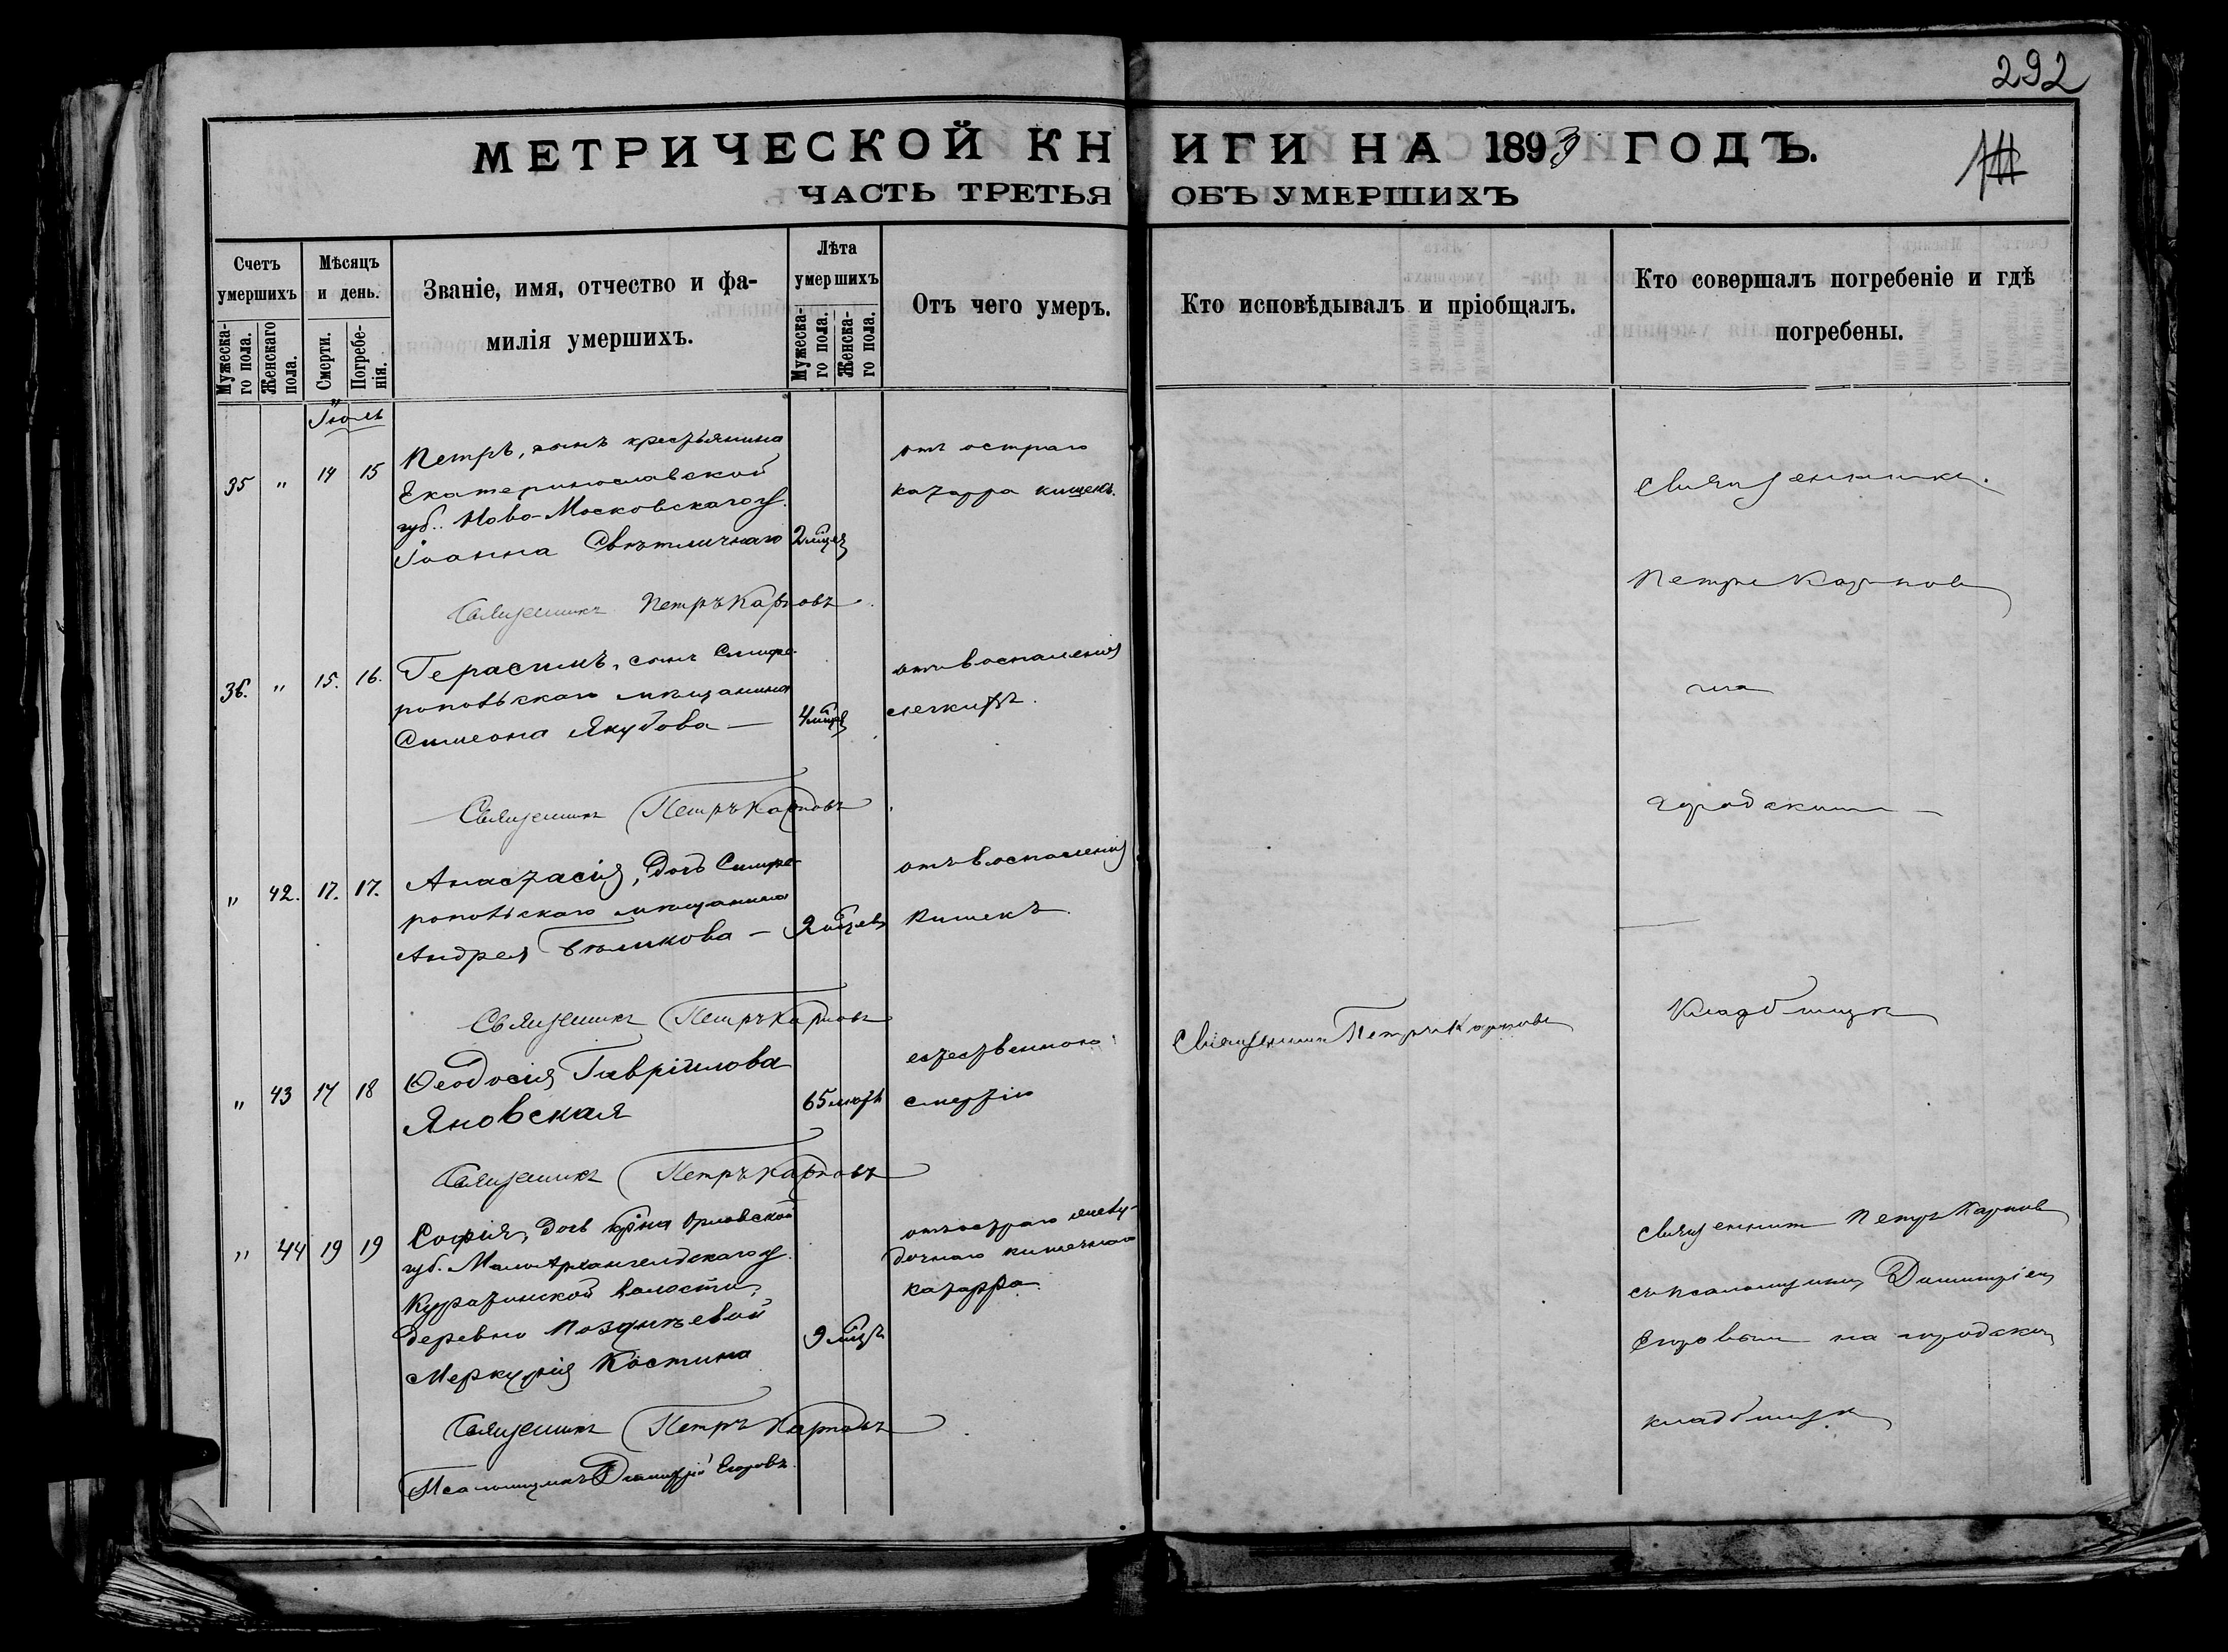 292
МЕТРИЧЕСКОЙ КНИГИ НА 1893 ГОДЪ.
ЧАСТЬ ТРЕТЬЯ ОБЪ УМЕРШИХЪ
Счетъ умершихъ
Мужеска-го пола.
Женскаго пола.
Мѣсяцъ и день.
Смерти.
Погребе-нія.
Званіе, имя, отчество и фа-
милія умершихъ.
Лѣта умершихъ
Мужеска-го пола.
Женска-го пола.
Отъ чего умеръ.
Кто исповѣдывалъ и пріобщалъ.
Кто совершалъ погребеніе и гдѣ
погребены.
Іюль
35 " 14 15
Петръ, сынъ крестьянина
Екатеринославской
губ. Ново-Московскаго у.
Іоанна Свѣтличнаго
2 мѣсец
отъ остраго
катарра кишекъ.
Священникъ Петръ Карповъ
36. " 15. 16.
Герасимъ, сынъ Симфе-
ропольскаго мѣщанина
Симеона Якубова —
4 мѣсец
отъ воспаленія
легкихъ.
Священникъ Петръ Карповъ
" 42. 17. 17.
Анастасія, дочь Симфе-
ропольскаго мѣщанина
Андрея Бѣликова —
2 мѣсец
отъ воспаленія
кишекъ.
Священникъ Петръ Карповъ
" 43 17 18
Ѳеодосія Гавріилова
Яновская
65 лѣтъ
естественною
смертію
Священникъ Петръ Карповъ
Священникъ Петръ Карповъ
Священникъ
Петръ Карповъ
на
городскомъ —
кладбищѣ
" 44 19 19
Софія, дочь кр-на Орловской
губ. Мало-Архангельскаго у.
волости,
деревни Позднѣевой
Меркурія Костина
9 мѣсц
отъ остраго желу-
дочнаго кишечнаго
катарра.
Священникъ Петръ Карповъ
съ псаломщик Димитріем
Егоровым на городском
кладбищѣ
Священникъ Петръ Карповъ
Псаломщикъ Димитрій Егоровъ.